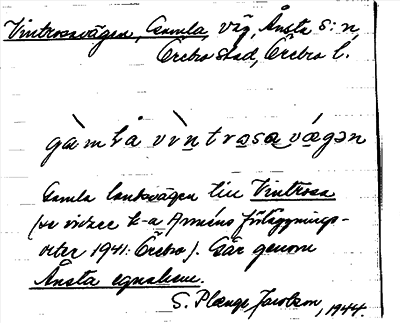 Vintrosavägen, Gamla, väg, Ånsta s:n,
Örebro stad, Örebro l.
gàmlå vìntrasavágən
Gamla landsvägen till Vintrosa
(se vidare k-a Arméns förläggnings-
orter 1941: Örebro). Går genom
Ånsta egnahem.
S. Plænge Jacobson, 1944.